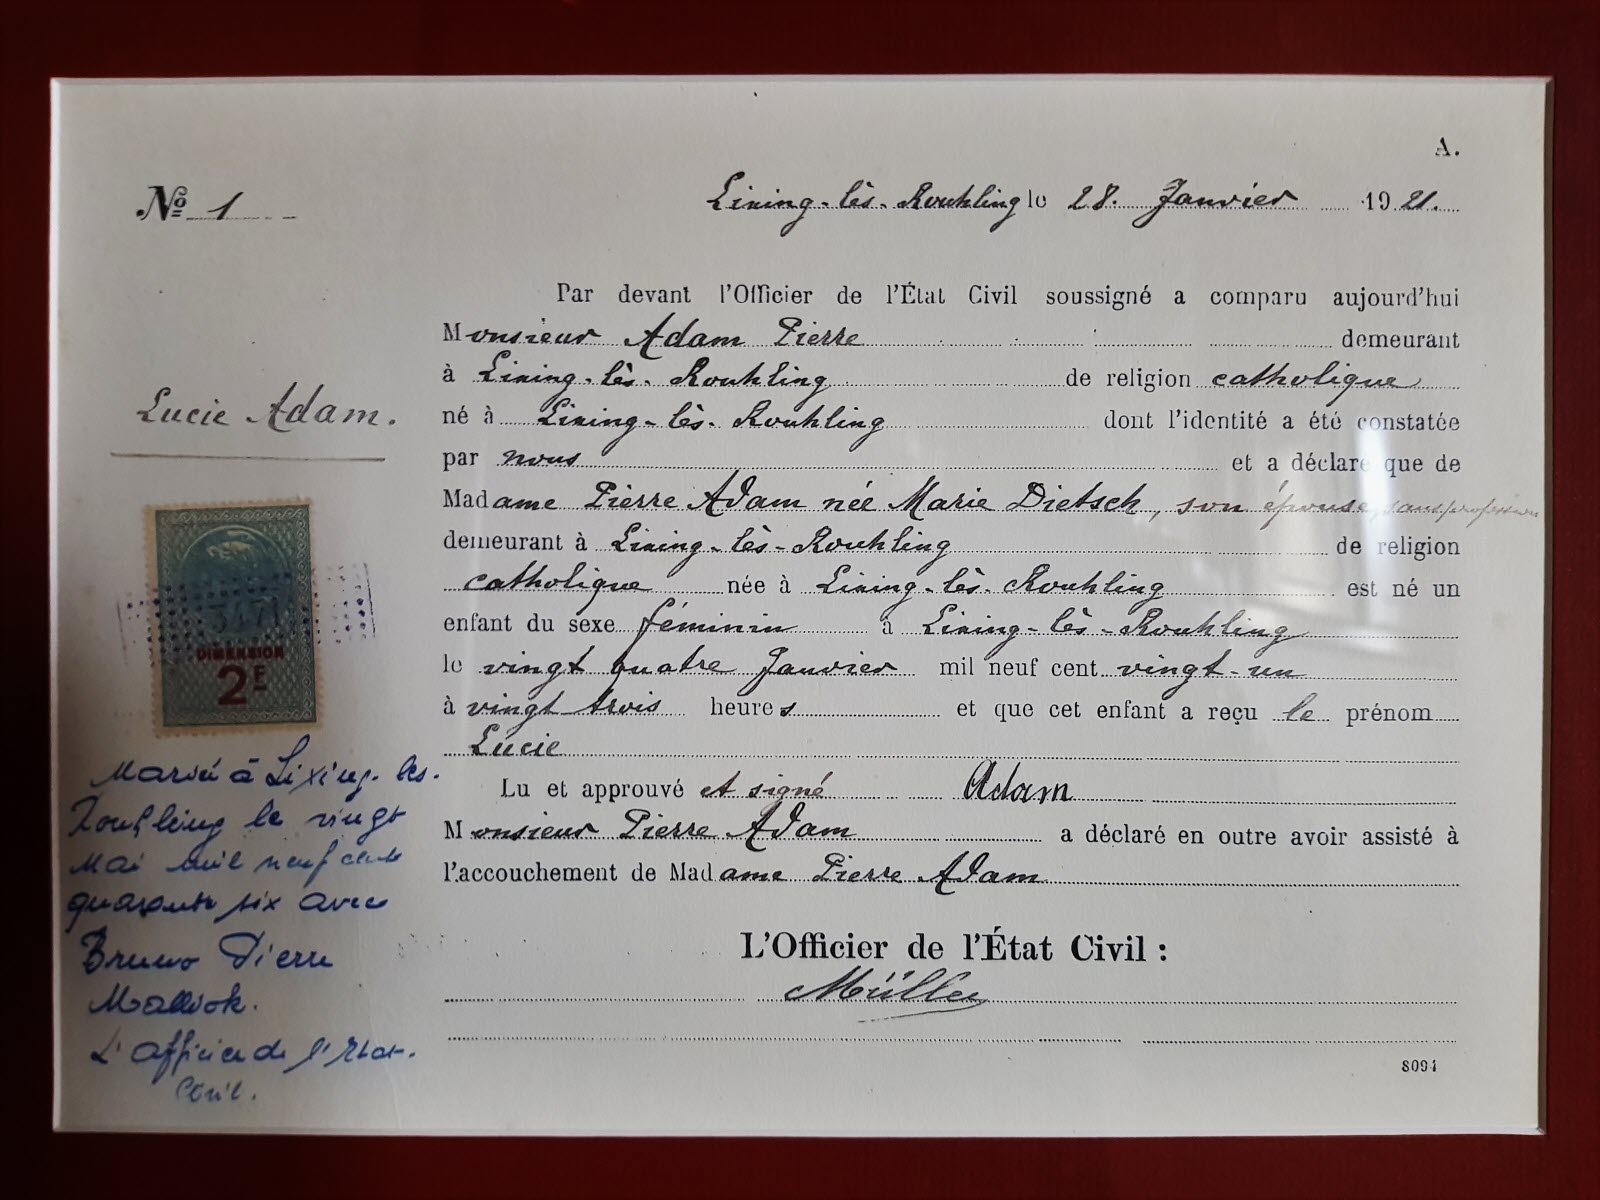 A.
№ 1
Lixing-lès-Rouhling le 28. Janvier 1921.
Par devant l'Officier de l'État Civil soussigné a comparu aujourd'hui
Monsieur Adam Pierre demeurant
à Lixing-lès-Rouhling de religion catholique
né à Lixing-lès-Rouhling dont l'identité a été constatée
par nous et a déclaré que de
Madame Pierre Adam née Marie Dietsch, son épouse, sans profession
demeurant à Lixing-lès-Rouhling de religion
catholique née à Lixing-lès-Rouhling est né un
enfant du sexe féminin à Lixing-lès-Rouhling
le vingt quatre Janvier mil neuf cent vingt-un
à vingt trois heures et que cet enfant a reçu le prénom
Lucie
Lu et approuvé et signé Adam
Monsieur Pierre Adam a déclaré en outre avoir assisté à
l'accouchement de Madame Pierre Adam
L'Officier de l'État Civil :
Müller
8094
Lucie Adam.
DIMENSION
2F
Marié à Lixing-les-
Rouhling le vingt
Mai mil neuf cent
quarante six avec
Bruno Pierre
L'officier de l'Etat-
Civil.